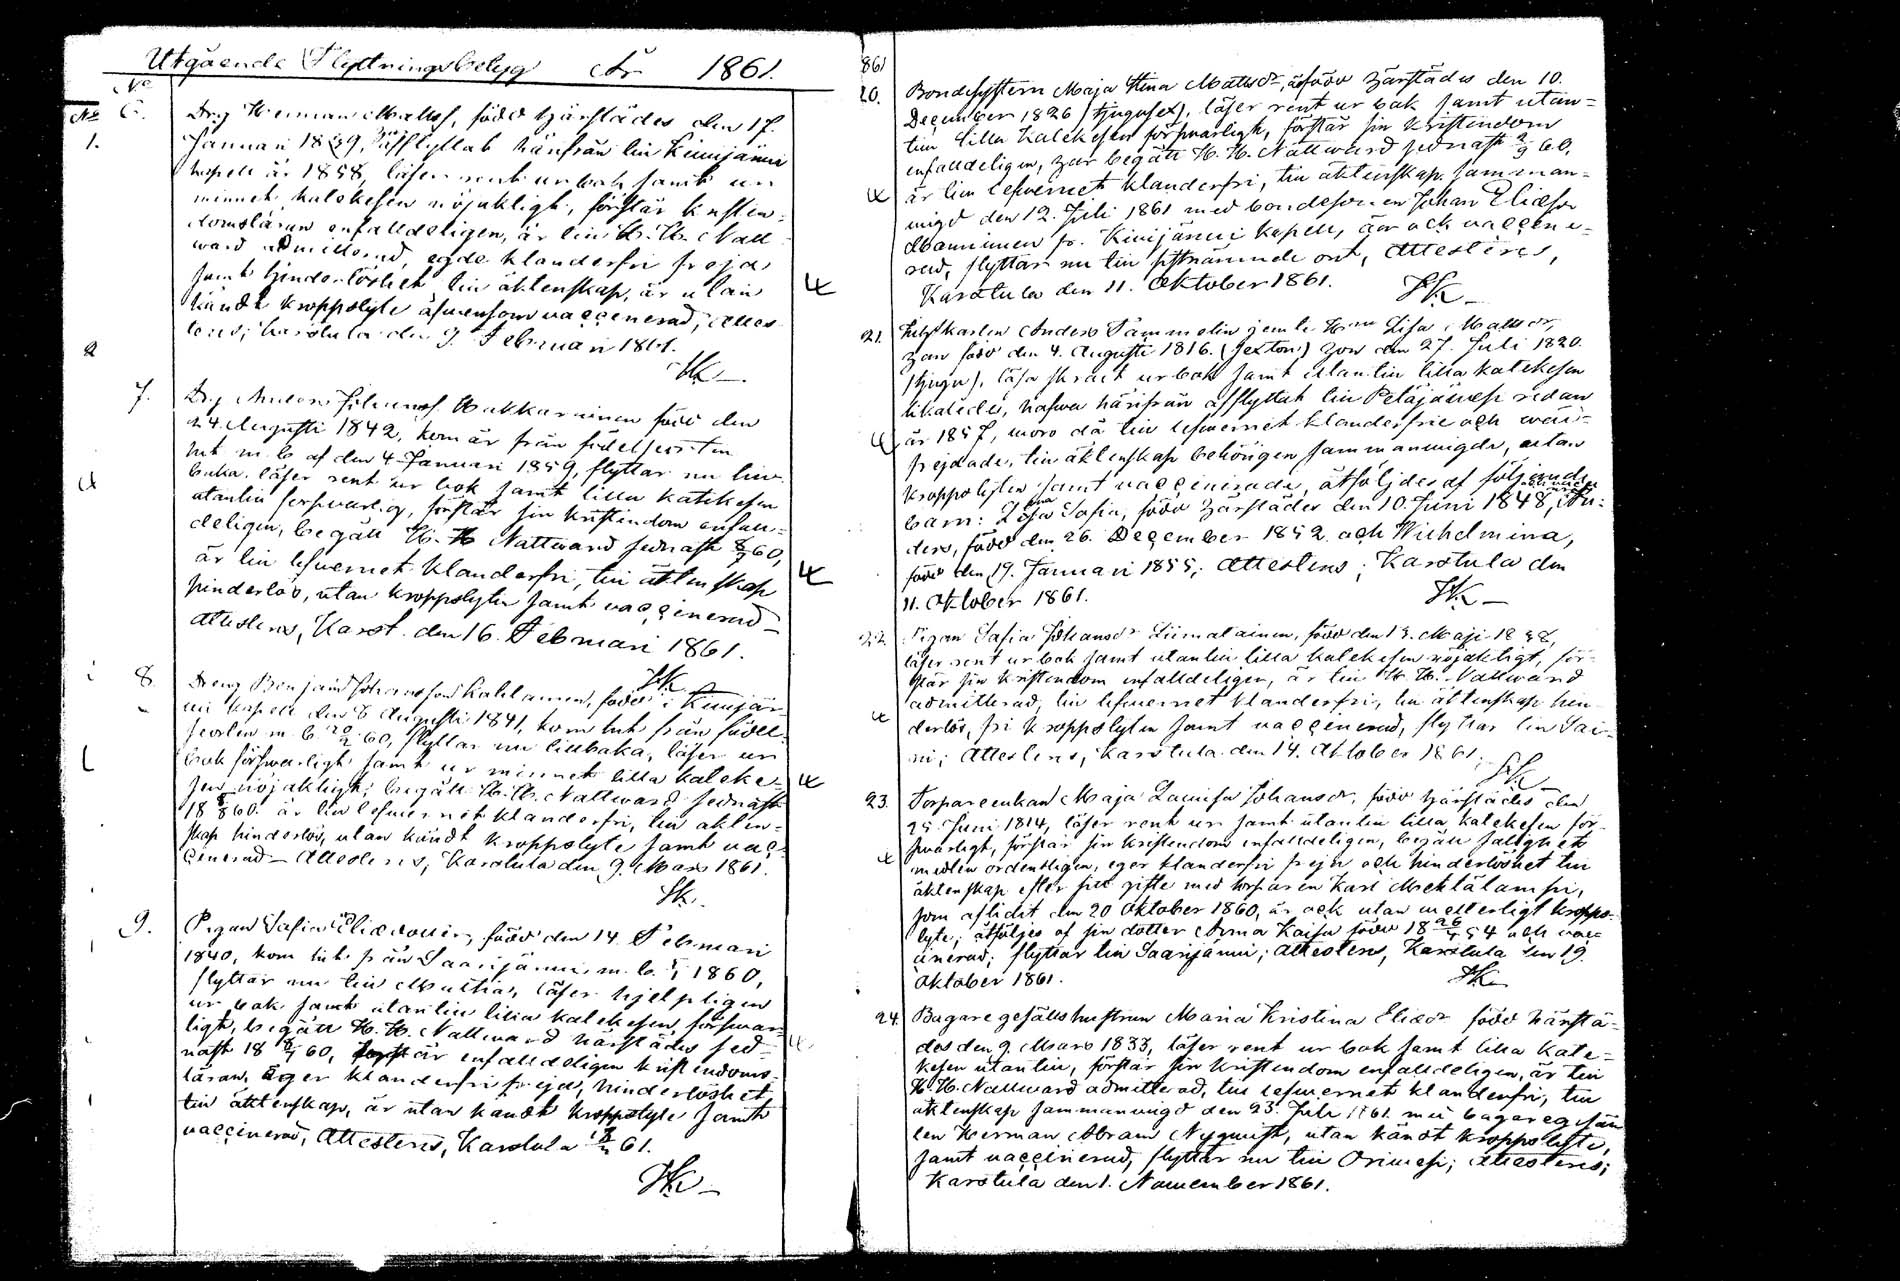 Utgående Flyttningsbetyg År 1861.
No
No 6. Drg Herman Mattsf, född härstädes den 17.
1. Januari 1839, är afflyttad härifrån till Kimijärvi
kapell år 1858, läser rent ur bok samt ur
minnet katekesen nöjaktigt, förstår kristen-
domsläran enfalldeligen, är till H. H. Natt-
ward admitterad, egde klanderfri frejd
samt hinderlöshet till äktenskap, är utan
kändt kroppslyte äfvensom vaccinerad; attes-
teras; Karstula den 9. Februari 1861.
HK
2
7. Drg Anders Johansf. Hakkarainen född den
24. Augusti 1842, kom är från födelseorten
hit m. b. af den 4 Januari 1859, flyttar nu till-
baka. läser rent ur bok samt lilla katekesen
utantill försvarlig, förstår sin kristendom enfall-
deligen, begått H. H. Nattward sednast 60,
är till lefvernet klanderfri, till äktenskap
hinderlös, utan kroppslyte samt vaccinerad
attesteras, Karst. den 16. Februari 1861.
HK
8. Dreng Benjamin Johansson Kahlainen, född i Kimijär-
vi kapell den 8 Augusti 1841, kom hit från födel-
seorten m. b. 20/2 60, flyttar nu tillbaka, läser ur
bok försvarligt samt ur minnet lilla kateke-
sen nöjaktigt; begått H. H. Nattward sednast
18 60. är till lefvernet klanderfri, till äkten-
skap hinderlös, utan kändt kroppslyte samt vac-
cinerad attesteras, Karstula den 9. Mars 1861.
HK.
9. Pigan Sofia Eliædotter, född den 14. Februari
1840, kom hit från Saarijärvi m. b. 1860,
flyttar nu till Multia, läser hjelpligen
ur bok samt utantill lilla katekesen försvar-
ligt, begått H. H. Nattward härstädes sed-
nast 18 60, förstår enfalldeligen kristendoms-
läran, äger klanderfri frejd, hinderlöshet
till äktenskap, är utan kändt kroppslyte samt
vaccinerad, attesteras, Karstula 61.
HK
861
20. Bondehustrun Maja Stina Mattsdr, är född härstädes den 10.
December 1826 (tjugusex), läser rent ur bok samt utan-
till lilla katekesen försvarligt, förstår sin kristendom
enfalldeligen, har begått H. H. Nattward sednast 2/9 60,
är till lefvernet klanderfri, till äktenskap samman-
vigd den 12. Juli 1861 med bondesonen Johan Eliæson
Manninen fr. Kimijärvi kapell, är ock vaccine-
rad, flyttar nu till sistnämnde ort, attesteras,
Karstula den 11. Oktober 1861.
HK
21. Inhyskarlen Anders Sammelin jemte Hru Lisa Mattsdr,
han född den 4. Augusti 1816. (sexton) hon den 27. Juli 1820
(tjugu), läsa skrait ur bok samt utantill lilla katekesen
likaledes, hafva härifrån afflyttat till Pelajärvi redan
år 1857, woro då till lefvernet klanderfrie och wäl-
frejdade, till äktenskap behörigen sammanvigde, utan
kroppslyten samt vaccinerade, åtföljdes af följande
barn: Lisa Sofia, född härstädes den 10. Juni 1848, An-
ders, född den 26. December 1852 och Wilhelmina,
född den 19. Januari 1855; attesteras; Karstula den
11. Oktober 1861.
HK
22. Pigan Sofia Johansdr Liimatainen, född den 13. Maji 1838,
läser rent ur bok samt utantill lilla katekesen nöjaktigt, för-
står sin kristendom enfalldeligen, är till H. H. Nattward
admitterad, till lefvernet klanderfri, till äktenskap hin-
derlös, fri kroppslyten samt vaccinerad, flyttar till Sai-
ni; attesteras, Karstula den 14. Oktober 1861;
HK
23. Torpareenkan Maja Lovisa Johansdr, född härstädes den
25. Juni 1814, läser rent ur samt utantill lilla katekesen för-
svarligt, förstår sin kristendom enfalldeligen, begått salighets
medlen ordentligen, eger klanderfri frejd och hinderlöshet till
äktenskap efter sitt gifte med torparen Karl Mehtälampi,
som aflidit den 20 Oktober 1860, är ock utan wetterligt kropps-
lyte; åtföljes af sin dotter Anna Kaisa född 18 26/4 54 och vac-
cinerad; flyttar till Saarijärvi; attesteras, Karstula den 19.
Oktober 1861.
HK
24. Bagaregesällshustrun Maria Kristina Eliædr född härstä-
des den 9. Mars 1833, läser rent ur bok samt lilla kate-
kesen utantill, förstår sin kristendom enfalldeligen, är till
H. H. Nattward admitterad, till lefvernet klanderfri, till
äktenskap sammanvigd den 23. Juli 1861. med bagaregesäl-
len Herman Abram Nyqvist, utan kändt kroppslyte,
samt vaccinerad, flyttar nu till Orimesi; attesteras;
Karstula den 1. November 1861.